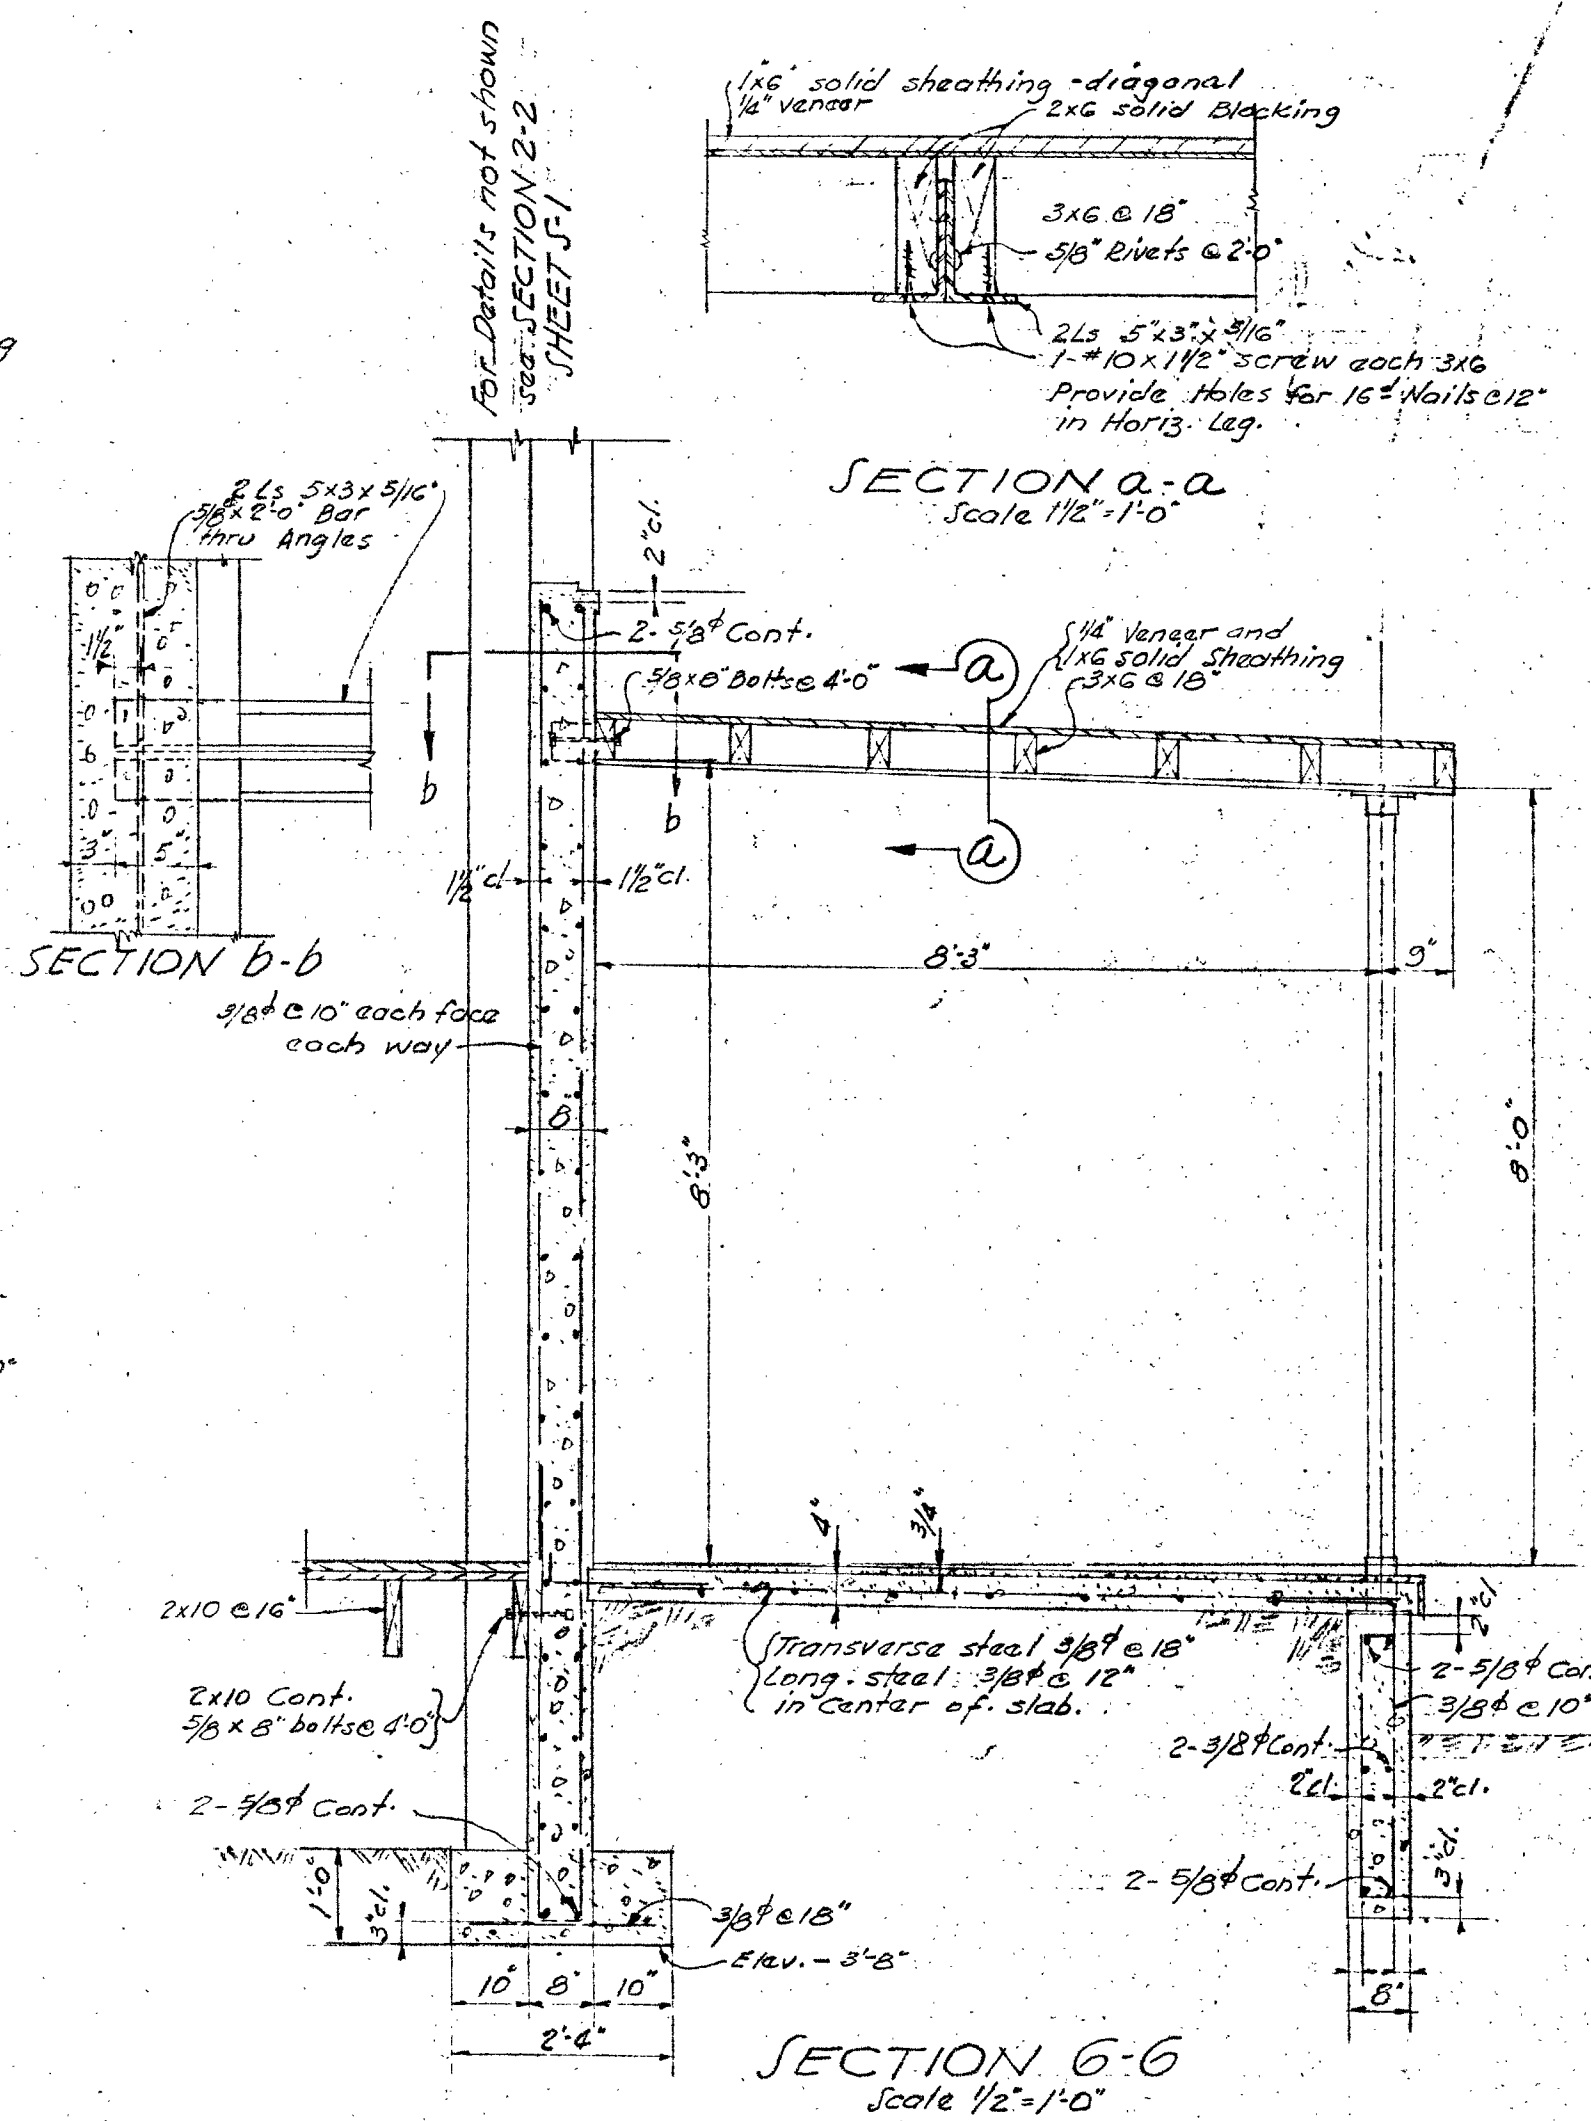 For Details not shown
see SECTION 2-2
SHEET S-1
1x6" solid sheathing - diagonal
1/4" veneer
2x6 solid Blocking
3x6 @ 18"
5/8" Rivets @ 2'-0"
2Ls 5"x3"x5/16"
1-#10x1 1/2" screw each 3x6
Provide Holes for 16d Nails @ 12"
in Horiz. Leg.
SECTION a-a
Scale 1 1/2"=1'-0"
2 Ls 5x3x5/16"
5/8"x2'-0" Bar
thru Angles
1 1/2"
3"
5"
SECTION b-b
2"cl.
2-5/8ϕ Cont.
5/8x8" Bolts @ 4'-0"
a
1/4" Veneer and
1x6 solid Sheathing
3x6 @ 18"
b
b
a
1 1/2"cl.
1 1/2"cl.
8'-3"
9"
3/8ϕ @ 10" each face
each way
8"
8'-3"
8'-0"
4"
3/4"
2x10 @ 16"
2x10 Cont.
5/8 x 8" bolts @ 4'-0"
Transverse steel 3/8ϕ @ 18"
Long. steel 3/8ϕ @ 12"
in center of slab.
2"cl.
2-5/8ϕ Con
3/8ϕ @ 10"
2-3/8ϕ Cont.
2"cl.
2"cl.
2-5/8ϕ Cont.
1'-0"
3"cl.
3/8ϕ @ 18"
Elev. - 3'-8"
2-5/8ϕ Cont.
3"cl.
10"
8"
10"
2'-4"
8"
SECTION 6-6
Scale 1/2"=1'-0"